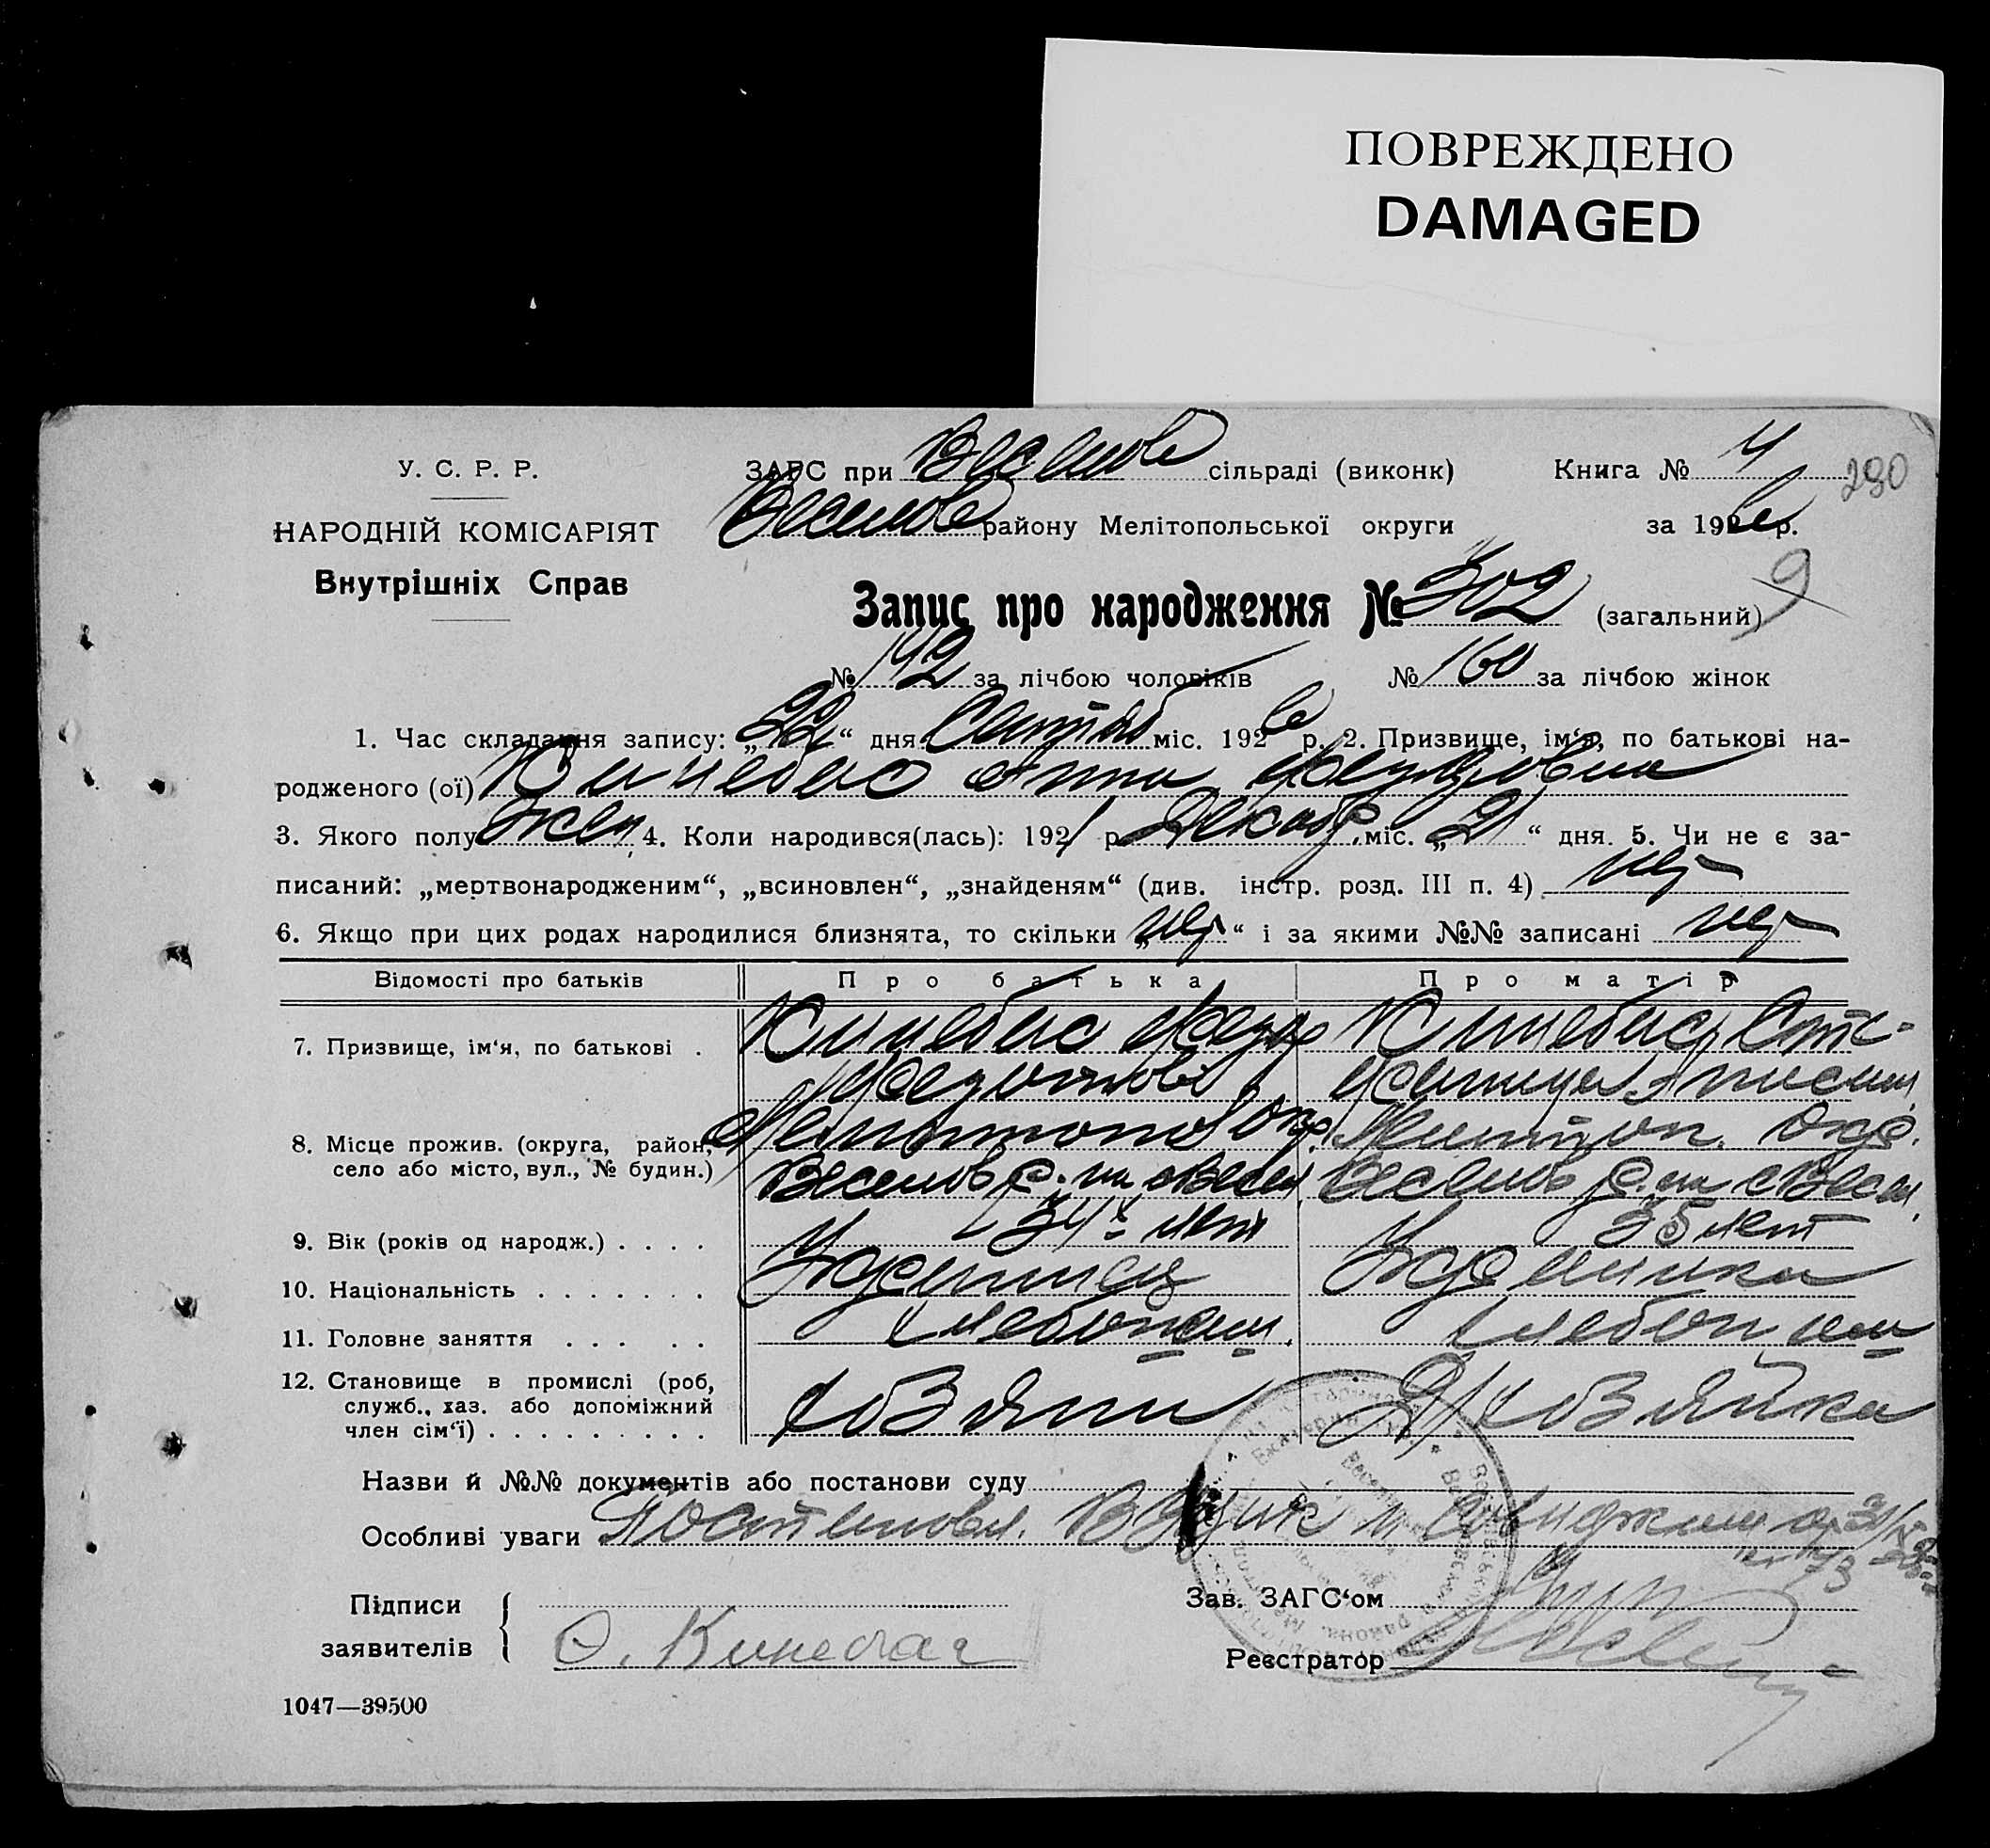 ПОВРЕЖДЕНО
DAMAGED
У. С. Р. Р.
НАРОДНІЙ КОМІСАРІЯТ
Внутрішніх Справ
ЗАГС при Веселов сільраді (виконк)
Книга № 4
290
Веселов району Мелітопольської округи
за 192 р.
Запис про народження № 302 (загальний)
9
№ 142 за лічбою чоловіків № 160 за лічбою жінок
1. Час складання запису: „22“ дня Сентяб міс. 192 р. 2. Призвище, ім‘я, по батькові на-
родженого (ої) Кинебас Анна Федоровна
3. Якого полу жен 4. Коли народився(лась): 1921 р. Декабр. міс. „21“ дня. 5. Чи не є за-
писаний: „мертвонародженим“, „всиновлен“, „знайденям“ (див. інстр. розд. III п. 4) нет
6. Якщо при цих родах народилися близнята, то скільки „нет“ і за якими №№ записані нет
Відомості про батьків Про батька Про матір
7. Призвище, ім‘я, по батькові . Кинебас Федор Кинебас
8. Місце прожив. (округа, район, село або місто, вул., № будин.) Мелитопол Окр. Мелитоп. Окр.
Веселов р. Веселов р.
9. Вік (років од народж.) . . . . 34 лет 35 лет
10. Національність . . . . . . . Украинец Украинка
11. Головне заняття . . . . . хлебопаш. хлебопаш
12. Становище в промислі (роб, служб., хаз. або допоміжний член сім‘ї) . . . . . . . . . хозяин Д/хозяйка
Назви й №№ документів або постанови суду
Особливі уваги Постановл.
Підписи заявителів
Зав. ЗАГС‘ом
Реєстратор
1047—39500